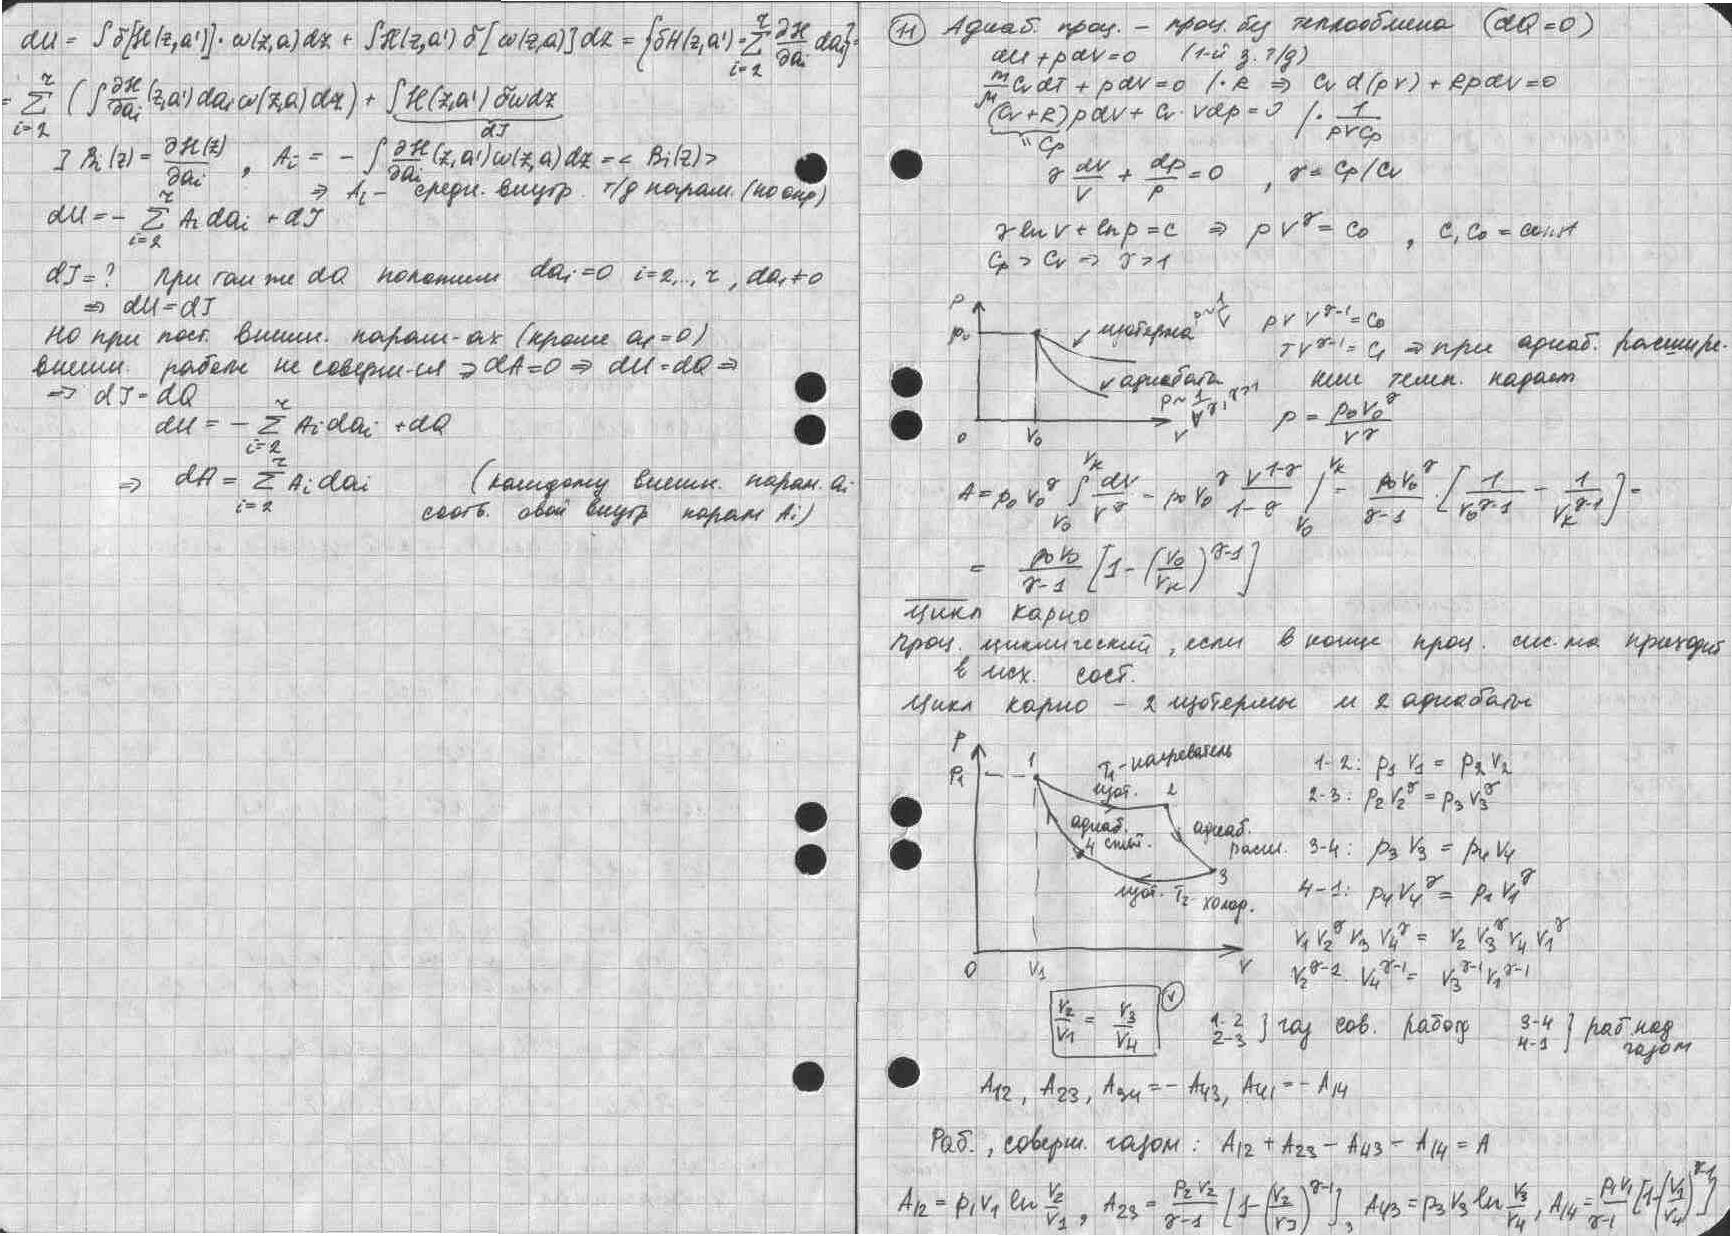 dU = ∫δ[ℋ(z,a')]·ω(z,a)dz + ∫ℋ(z,a') δ[ω(z,a)]dz = {δH(z,a') = Σ_{i=2}^{r} ∂ℋ/∂a_i da_i} =
= Σ_{i=2}^{r} (∫ ∂ℋ/∂a_i (z,a') da_i ω(z,a)dz) + ∫ℋ(z,a') δω dz
dI
] B_i(z) = ∂ℋ(z)/∂a_i , A_i = - ∫ ∂ℋ/∂a_i (z,a')ω(z,a)dz = < B_i(z) >
⇒ A_i - средн. внутр. т/д парам. (по опр)
dU = - Σ_{i=2}^{r} A_i da_i + dI
dI = ? при том же dQ положим da_i = 0 i = 2,..,r , da_1 ≠ 0
⇒ dU = dI
Но при пост. внешн. парам-ах (кроме a_1 = 0)
внешн. работы не соверш-ся ⇒ dA = 0 ⇒ dU = dQ ⇒
⇒ dI = dQ
dU = - Σ_{i=2}^{r} A_i da_i + dQ
⇒ dA = Σ_{i=2}^{r} A_i da_i (каждому внешн. парам. a_i
соотв. свой внутр парам A_i)
11 Адиаб. проц. - проц. без теплообмена (dQ = 0)
dU + pdV = 0 (1-й з. т/д)
m/μ C_v dT + pdV = 0 /·R ⇒ C_v d(pV) + RpdV = 0
(C_v + R) pdV + C_v·Vdp = 0 /· 1/(pVC_p)
" C_p
γ dV/V + dp/p = 0 , γ = C_p/C_v
γ ln V + ln p = C ⇒ pV^γ = C_0 , C, C_0 = const
C_p > C_v ⇒ γ > 1
p
p_0
изотерма p~1/V
адиабата
p ~ 1/V^γ, γ>1
0 V_0 V
pV V^{γ-1} = C_0
TV^{γ-1} = C_1 ⇒ при адиаб. расшире-
нии темп. падает
p = p_0V_0^γ / V^γ
A = p_0V_0^γ ∫_{V_0}^{V_k} dV/V^γ = p_0V_0^γ V^{1-γ}/(1-γ) |_{V_0}^{V_k} = p_0V_0^γ/(γ-1) · [1/V_0^{γ-1} - 1/V_k^{γ-1}] =
= p_0V_0/(γ-1) [1 - (V_0/V_k)^{γ-1}]
Цикл Карно
Проц. циклический, если в конце проц. сис-ма приходит
в исх. сост.
Цикл Карно - 2 изотермы и 2 адиабаты
p
p_1
1
T_1-нагреватель
изот.
2
адиаб.
сжат.
4
адиаб.
расш.
3
изот. T_2 холод.
0 V_1 V
1-2: p_1V_1 = p_2V_2
2-3: p_2V_2^γ = p_3V_3^γ
3-4: p_3V_3 = p_4V_4
4-1: p_4V_4^γ = p_1V_1^γ
V_1V_2^γV_3V_4^γ = V_2V_3^γV_4V_1^γ
V_2^{γ-1} V_4^{γ-1} = V_3^{γ-1}V_1^{γ-1}
V_2/V_1 = V_3/V_4 (v)
1-2 2-3 } газ сов. работу 3-4 4-1 } раб. над газом
A_12, A_23, A_34 = - A_43, A_41 = - A_14
Раб., соверш. газом: A_12 + A_23 - A_43 - A_14 = A
A_12 = p_1V_1 ln V_2/V_1 , A_23 = p_2V_2/(γ-1) [1-(V_2/V_3)^{γ-1}], A_43 = p_3V_3 ln V_3/V_4, A_14 = p_1V_1/(γ-1) [1-(V_1/V_4)^{γ-1}]